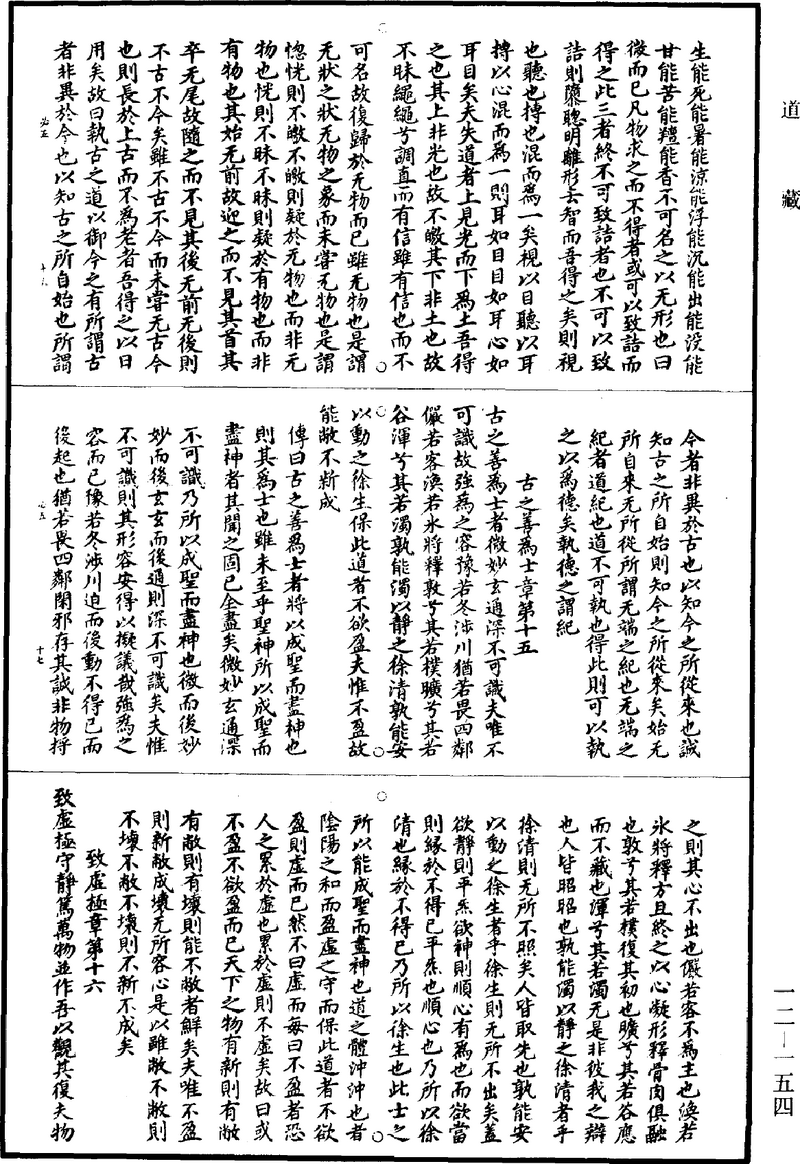 道藏
生能死能暑能涼能浮能沉能出能沒能
甘能苦能羶能香不可名之以无形也曰
微而已凡物求之而不得者或可以致詰而
得之此三者終不可致詰者也不可以致
詰則隳聰明離形去智而吾得之矣則視
也聽也摶也混而為一矣視以目聽以耳
摶以心混而為一則耳如目目如耳心如
耳目矣夫失道者上見光而下為土吾得
之也其上非光也故不皦其下非土也故
不昧繩繩兮調直而有信雖有信也而不
可名故復歸於无物而已雖无物也是謂
无狀之狀无物之象而未嘗无物也是謂
惚恍則不皦不皦則疑於无物也而非无
物也恍則不昧不昧則疑於有物也而非
有物也其始无前故迎之而不見其首其
卒无尾故隨之而不見其後无前无後則
不古不今矣雖不古不今而未嘗无古今
也則長於上古而不為老者吾得之以日
用矣故曰執古之道以御今之有所謂古
者非異於今也以知古之所自始也所謂
今者非異於古也以知今之所從來也誠
知古之所自始則知今之所從來矣始无
所自來无所從所謂无端之紀也无端之
紀者道紀也道不可執也得此則可以執
之以為德矣執德之謂紀
古之善為士章第十五
古之善為士者微妙玄通深不可識夫唯不
可識故強為之容豫若冬涉川猶若畏四鄰
儼若客渙若氷將釋敦兮其若樸曠兮其若
谷渾兮其若濁孰能濁以靜之徐清孰能安
以動之徐生保此道者不欲盈夫惟不盈故
能敝不新成
傳曰古之善為士者將以成聖而盡神也
則其為士也雖未至乎聖神所以成聖而
盡神者其聞之固已全盡矣微妙玄通深
不可識乃所以成聖而盡神也微而後妙
妙而後玄玄而後通則深不可識矣夫惟
不可識則其形容安得以擬議哉強為之
容而已豫若冬涉川迫而後動不得已而
後起也猶若畏四鄰閑邪存其誠非物捋
之則其心不出也儼若客不為主也渙若
氷將釋方且終之以心凝形釋骨肉俱融
也敦兮其若樸復其初也曠兮其若谷應
而不藏也渾兮其若濁无是非彼我之辯
也人皆昭昭也孰能濁以靜之徐清者乎
徐清則无所不照矣人皆取先也孰能安
以動之徐生者乎徐生則无所不出矣蓋
欲靜則平炁欲神則順心有為也而欲當
則緣於不得已平炁也順心也乃所以徐
清也緣於不得已乃所以徐生也此士之
所以能成聖而盡神也道之體沖沖也者
陰陽之和而盈虛之守而保此道者不欲
盈則虛而已然不曰虛而每曰不盈者恐
人之累於虛也累於虛則不虛矣故曰或
不盈不欲盈而已天下之物有新則有敝
有敝則有壞則能不敝者鮮矣夫唯不盈
則新敝成壞无所容心是以雖敝不敝則
不壞不敝不壞則不新不成矣
致虛極章第十六
致虛極守靜篤萬物並作吾以觀其復夫物
十七
一二—一五四